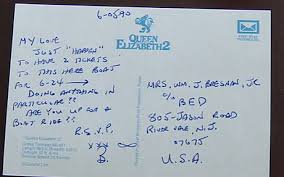 MY LOVE
JUST "HAPPEN"
TO HAVE 2 TICKETS
TO THIS HERE BOAT
FOR 6-24
DOING ANYTHING IN
PARTICULAR??
ARE YOU UP FOR A
BOAT RIDE??
R.S.V.P.
XXX
B.
QUEEN
ELIZABETH 2
MRS. WM. J. BRESNAN, JR
c/o
BED
805-JASON ROAD
RIVER VALE, N.J.
07675
U.S.A.